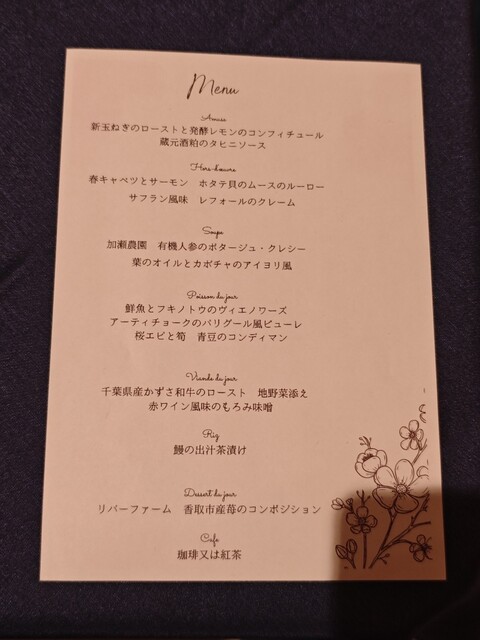 Menu
Amuse
新玉ねぎのローストと発酵レモンのコンフィチュール
蔵元酒粕のタヒニソース
Hors-d'œuvre
春キャベツとサーモン　ホタテ貝のムースのルーロー
サフラン風味　レフォールのクレーム
Soupe
加瀬農園　有機人参のポタージュ・クレシー
葉のオイルとカボチャのアイヨリ風
Poisson du jour
鮮魚とフキノトウのヴィエノワーズ
アーティチョークのバリグール風ピューレ
桜エビと筍　青豆のコンディマン
Viande du jour
千葉県産かずさ和牛のロースト　地野菜添え
赤ワイン風味のもろみ味噌
Riz
鰻の出汁茶漬け
Dessert du jour
リバーファーム　香取市産苺のコンポジション
Cafe
珈琲又は紅茶